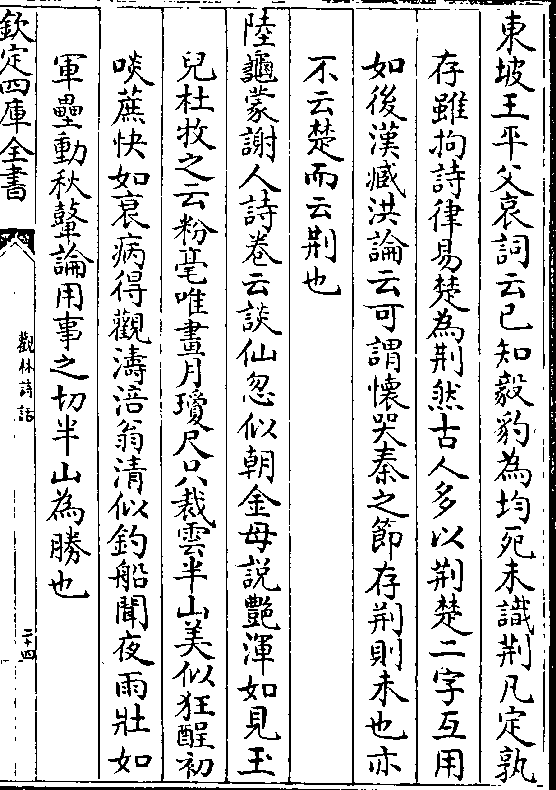 東坡王平父哀詞云已知毅豹為均死未識荆凡定孰
存雖拘詩律易楚為荆然古人多以荆楚二字互用
如後漢臧洪論云可謂懷哭秦之節存荆則未也亦
不云楚而云荆也
陸龜蒙謝人詩卷云談仙忽似朝金母説艷渾如見玉
兒杜牧之云粉毫唯畫月瓊尺只裁雲半山美似狂酲初
啖蔗快如衰病得觀濤涪翁清似釣船聞夜雨壯如
軍壘動秋鼙論用事之切半山為勝也
欽定四庫全書
觀林詩話
二十四